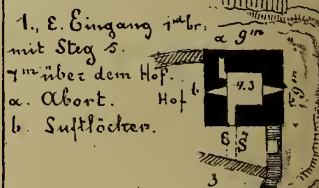 1., E. Eingang
mit Steg S.
7m über dem Hof.
a. Abort. Hof
b. Luftlöcher.
a 9m
b
4.3
9m
E
S
3